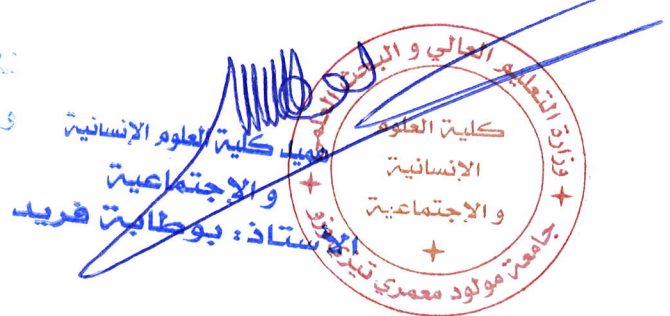 عميد كلية العلوم الإنسانية
و الإجتماعية
الأستاذ: بوطابة فريد
وزارة التعليم العالي و البحث العلمي
كلية العلوم
الإنسانية
و الإجتماعية
جامعة مولود معمري تيزي وزو